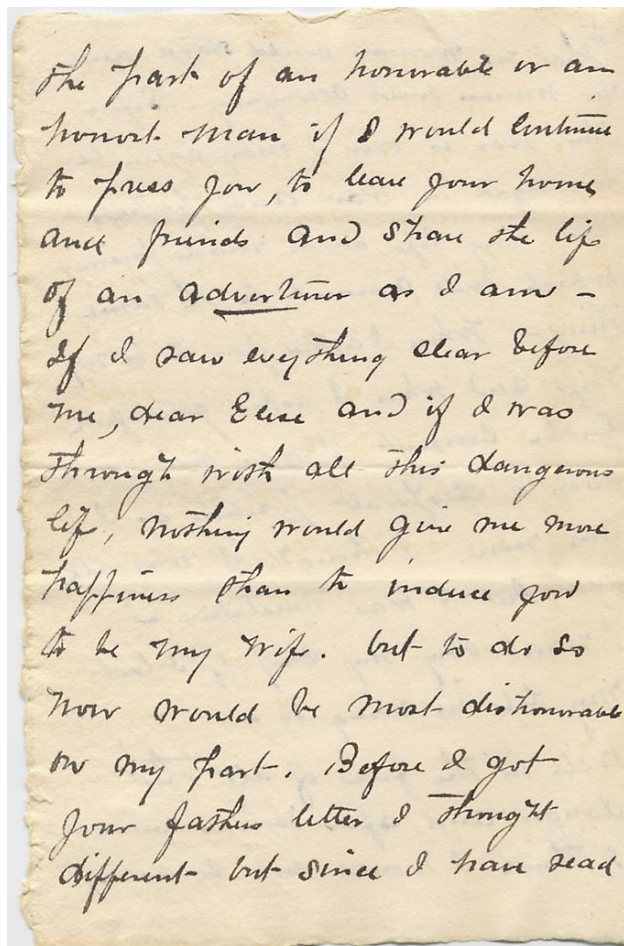 the part of an honorable or an
honost man if I would continue
to press you, to leave your home
and friends and share the life
of an adventurer as I am -
If I saw everything clear before
me, dear Elise and if I was
through with all this dangerous
life, nothing would give me more
happiness than to induce you
to be my wife. but to do so
now would be most dishonorable
on my part. Before I got
your fathers letter I thought
different but since I have read